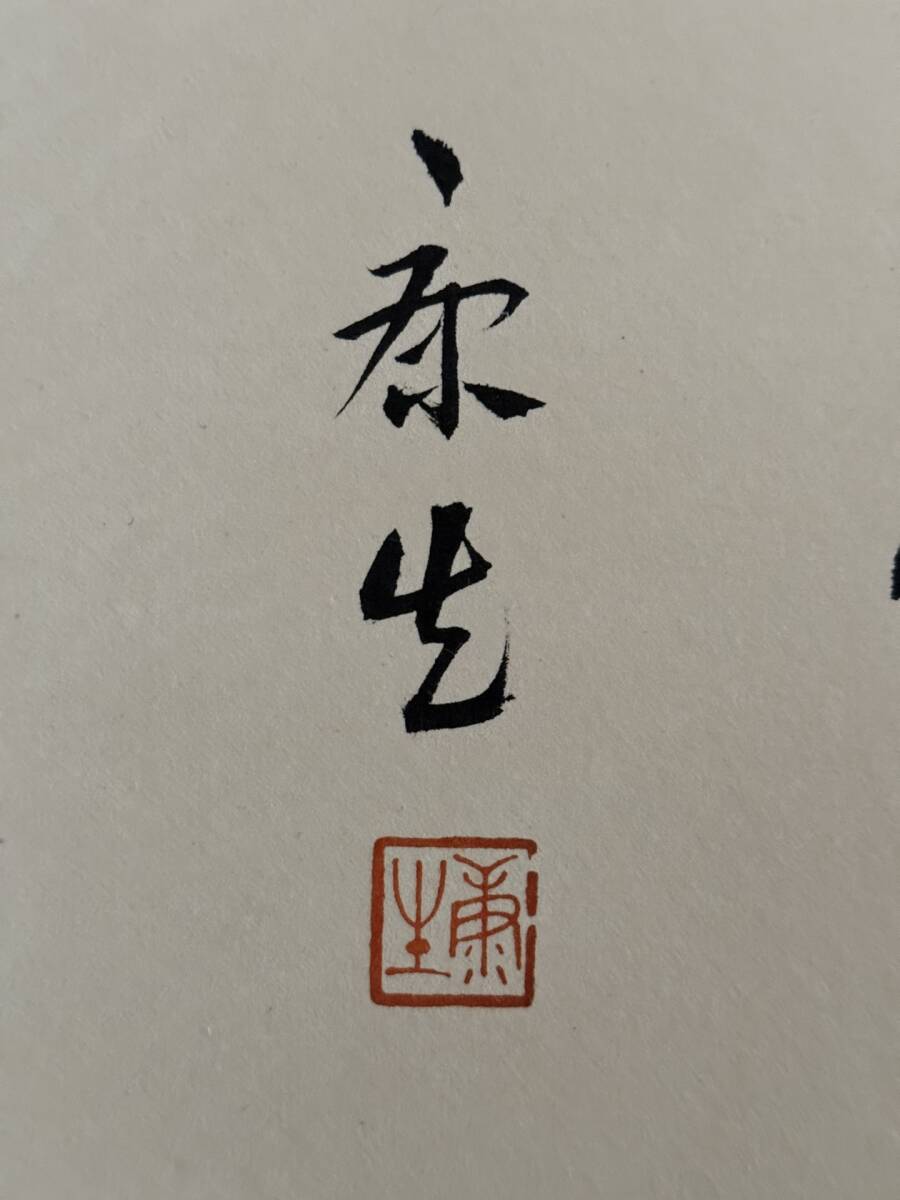 康生
康生